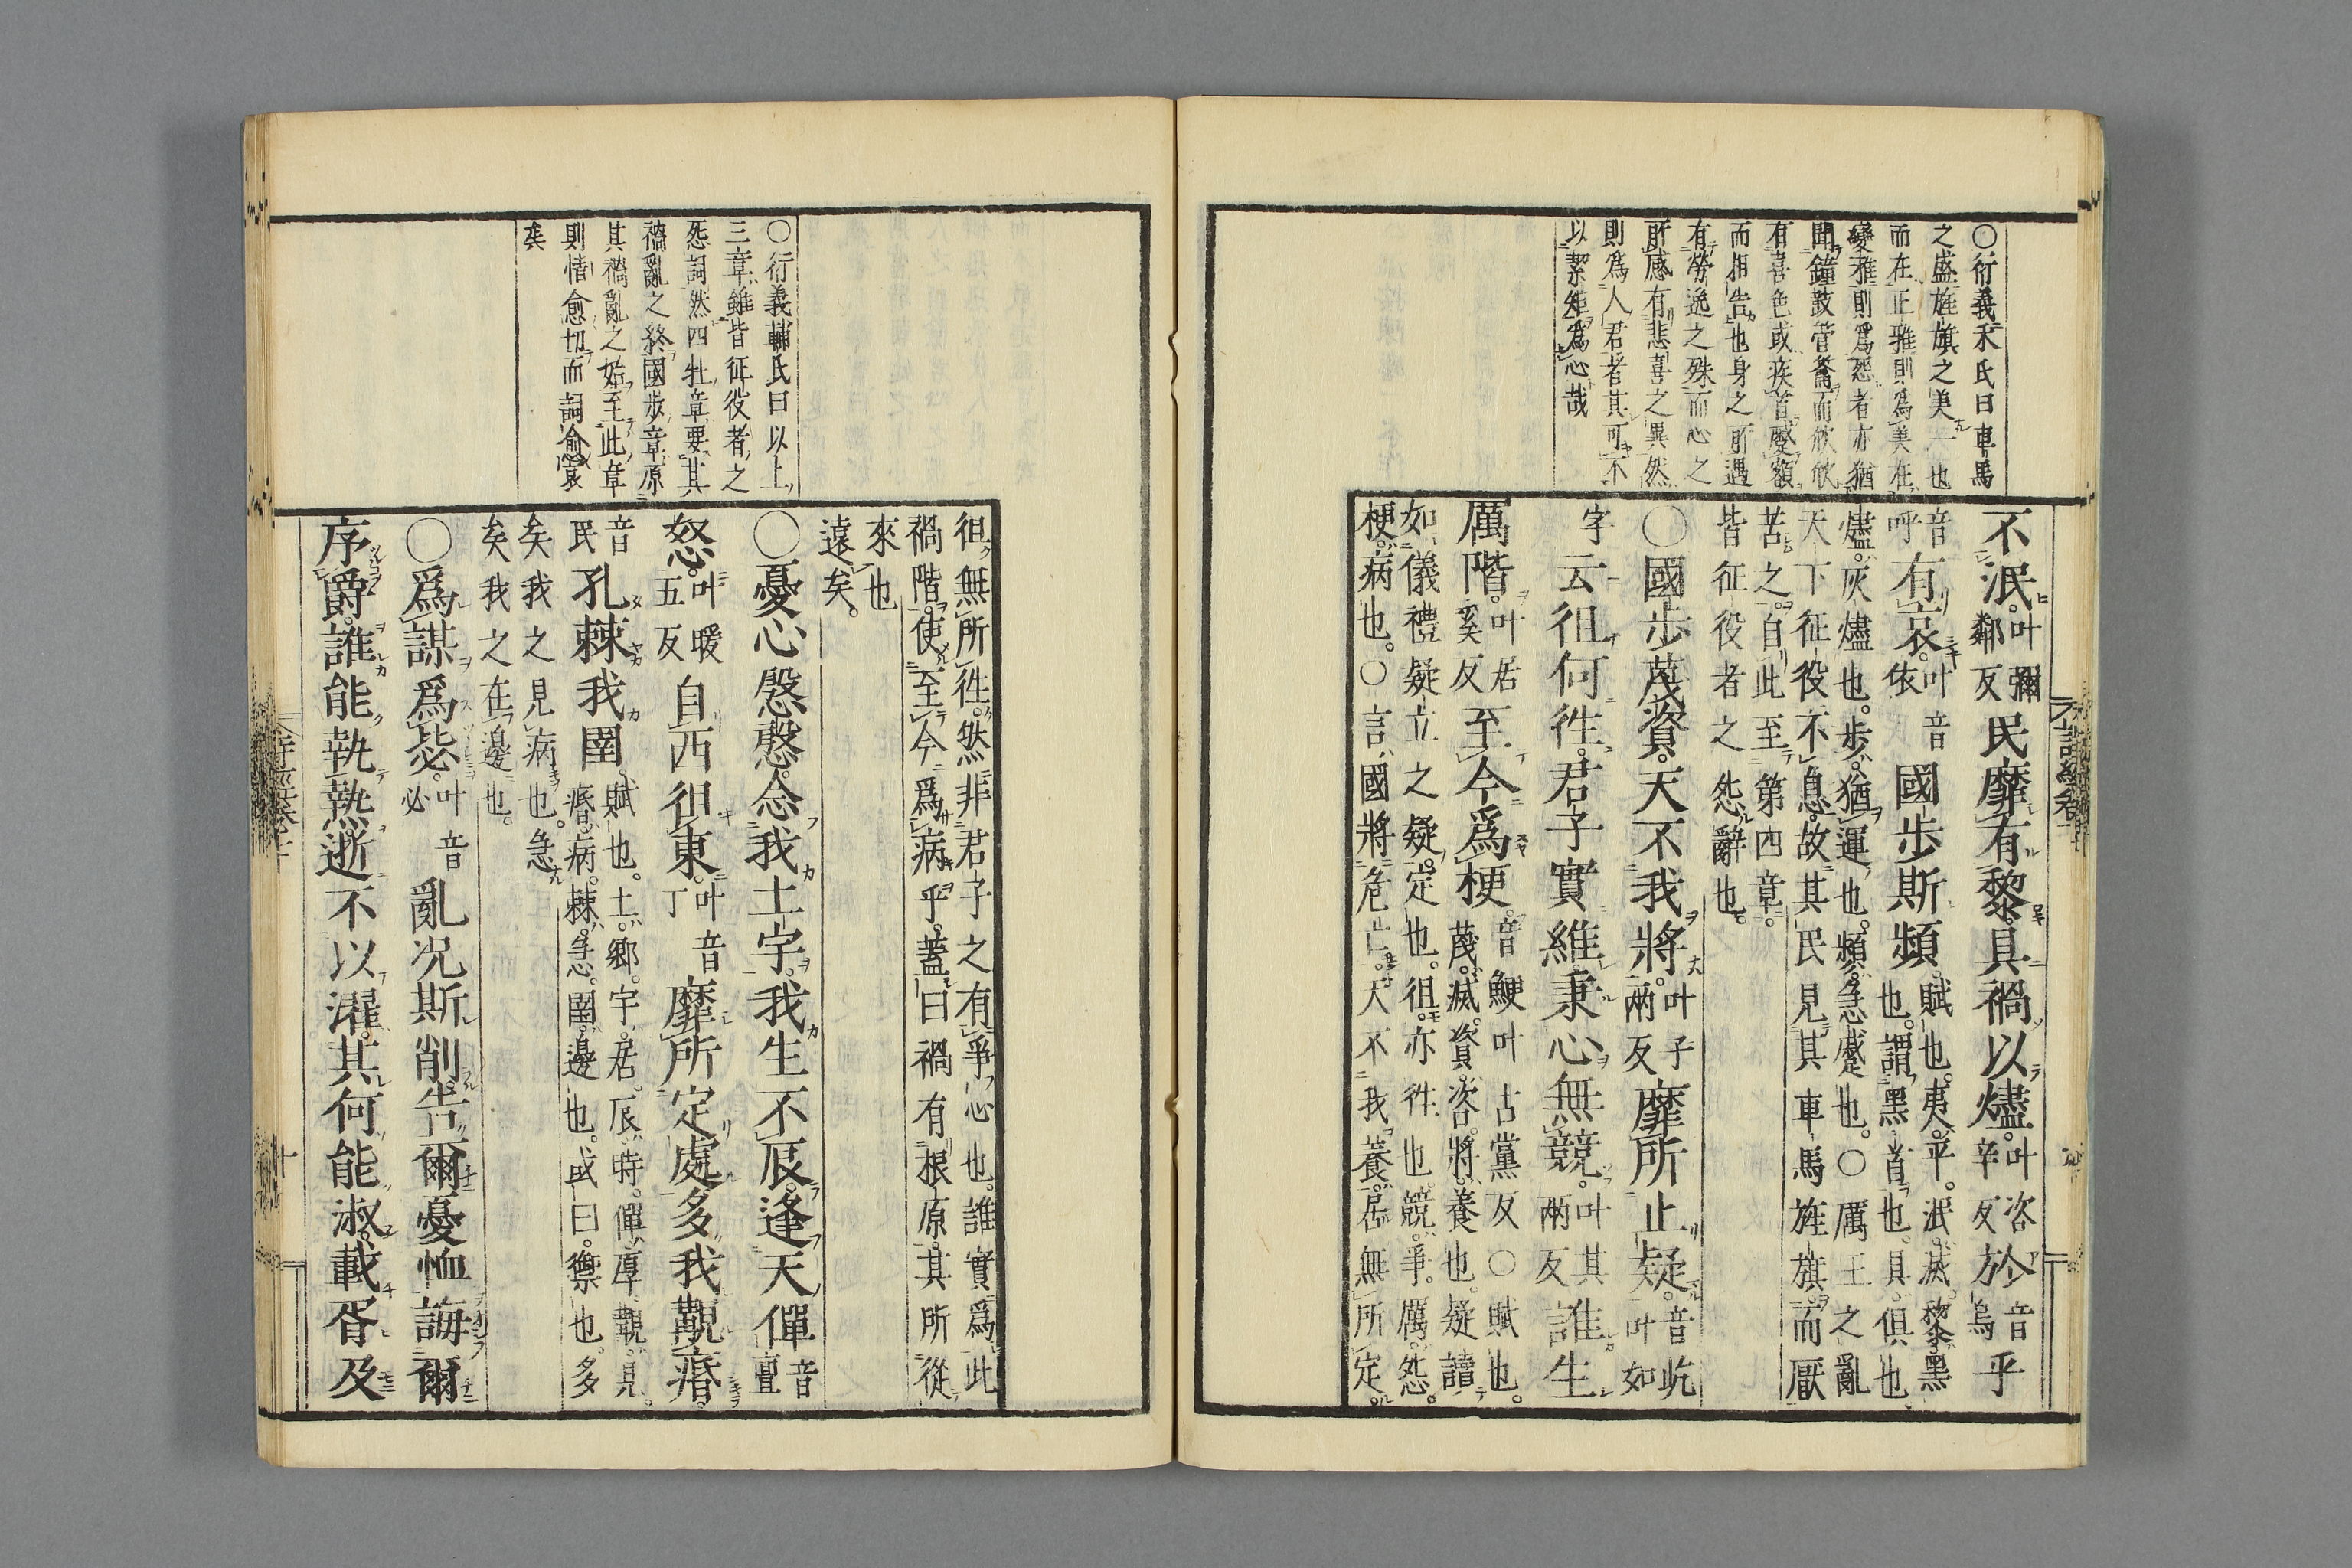 ○衍義朱氏曰車馬
之盛旌旗之美一也
而在正雅則爲美在
變雅則爲怨者亦猶
聞鐘鼓管籥而欣欣
有喜色或疾首蹙額
而相告也身之所遇
有勞逸之殊而心之
所感有悲喜之異然
則爲人君者其可不
以絜矩爲心哉
不泯叶彌鄰反民靡有黎具禍以燼叶咨辛反於音烏乎
音呼有哀叶音依國步斯頻賦也夷平泯滅黎黑也謂黑首也具俱也
燼灰燼也步猶運也頻急蹙也○厲王之亂
天下征役不息故其民見其車馬旌旗而厭
苦之自此至第四章
皆征役者之怨辭也
○國步蔑資天不我將叶子兩反靡所止疑音屹叶如
字云徂何往君子實維秉心無競叶其兩反誰生
厲階叶居奚反至今爲梗音鯁叶古黨反○賦也蔑滅資咨將養也疑讀
如儀禮疑立之疑定也徂亦往也競爭厲怨
梗病也○言國將危亡天不我養居無所定
徂無所往然非君子之有爭心也誰實爲此
禍階使至今爲病乎蓋曰禍有根原其所從
來也
遠矣
○衍義輔氏曰以上
三章雖皆征役者之
怨詞然四牡章要其
禍亂之終國步章原
其禍亂之始至此章
則情愈切而詞愈哀
矣
○憂心慇慇念我土宇我生不辰逢天僤音亶
怒叶暖五反自西徂東叶音丁靡所定處多我覯痻
音民孔棘我圉賦也土鄉宇居辰時僤厚覯見痻病棘急圉邊也或曰禦也多
矣我之見病也急
矣我之在邊也
○爲謀爲毖叶音必亂況斯削告爾憂恤誨爾
序爵誰能執熱逝不以濯其何能淑載胥及